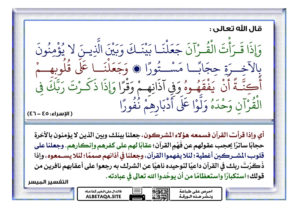 قال الله تعالى :
وَإِذَا قَرَأْتَ الْقُرْآنَ جَعَلْنَا بَيْنَكَ وَبَيْنَ الَّذِينَ لَا يُؤْمِنُونَ
بِالْآخِرَةِ حِجَابًا مَّسْتُورًا ۞ وَجَعَلْنَا عَلَىٰ قُلُوبِهِمْ
أَكِنَّةً أَن يَفْقَهُوهُ وَفِي آذَانِهِمْ وَقْرًا ۚ وَإِذَا ذَكَرْتَ رَبَّكَ فِي
الْقُرْآنِ وَحْدَهُ وَلَّوْا عَلَىٰ أَدْبَارِهِمْ نُفُورًا
(الإسراء: ٤٥ - ٤٦)
أي وإذا قرأت القرآن فسمعه هؤلاء المشركون، جعلنا بينك وبين الذين لا يؤمنون بالآخرة
حجابًا ساترًا يحجب عقولهم عن فَهْم القرآن؛ عقابًا لهم على كفرهم وإنكارهم. وجعلنا على
قلوب المشركين أغطية؛ لئلا يفهموا القرآن، وجعلنا في آذانهم صممًا؛ لئلا يسمعوه، وإذا
ذَكَرْتَ ربك في القرآن داعيًا لتوحيده ناهيًا عن الشرك به رجعوا على أعقابهم نافرين من
قولك؛ استكبارًا واستعظامًا من أن يوحِّدوا الله تعالى في عبادته.
التفسير الميسر
ALBETAQA.SITE